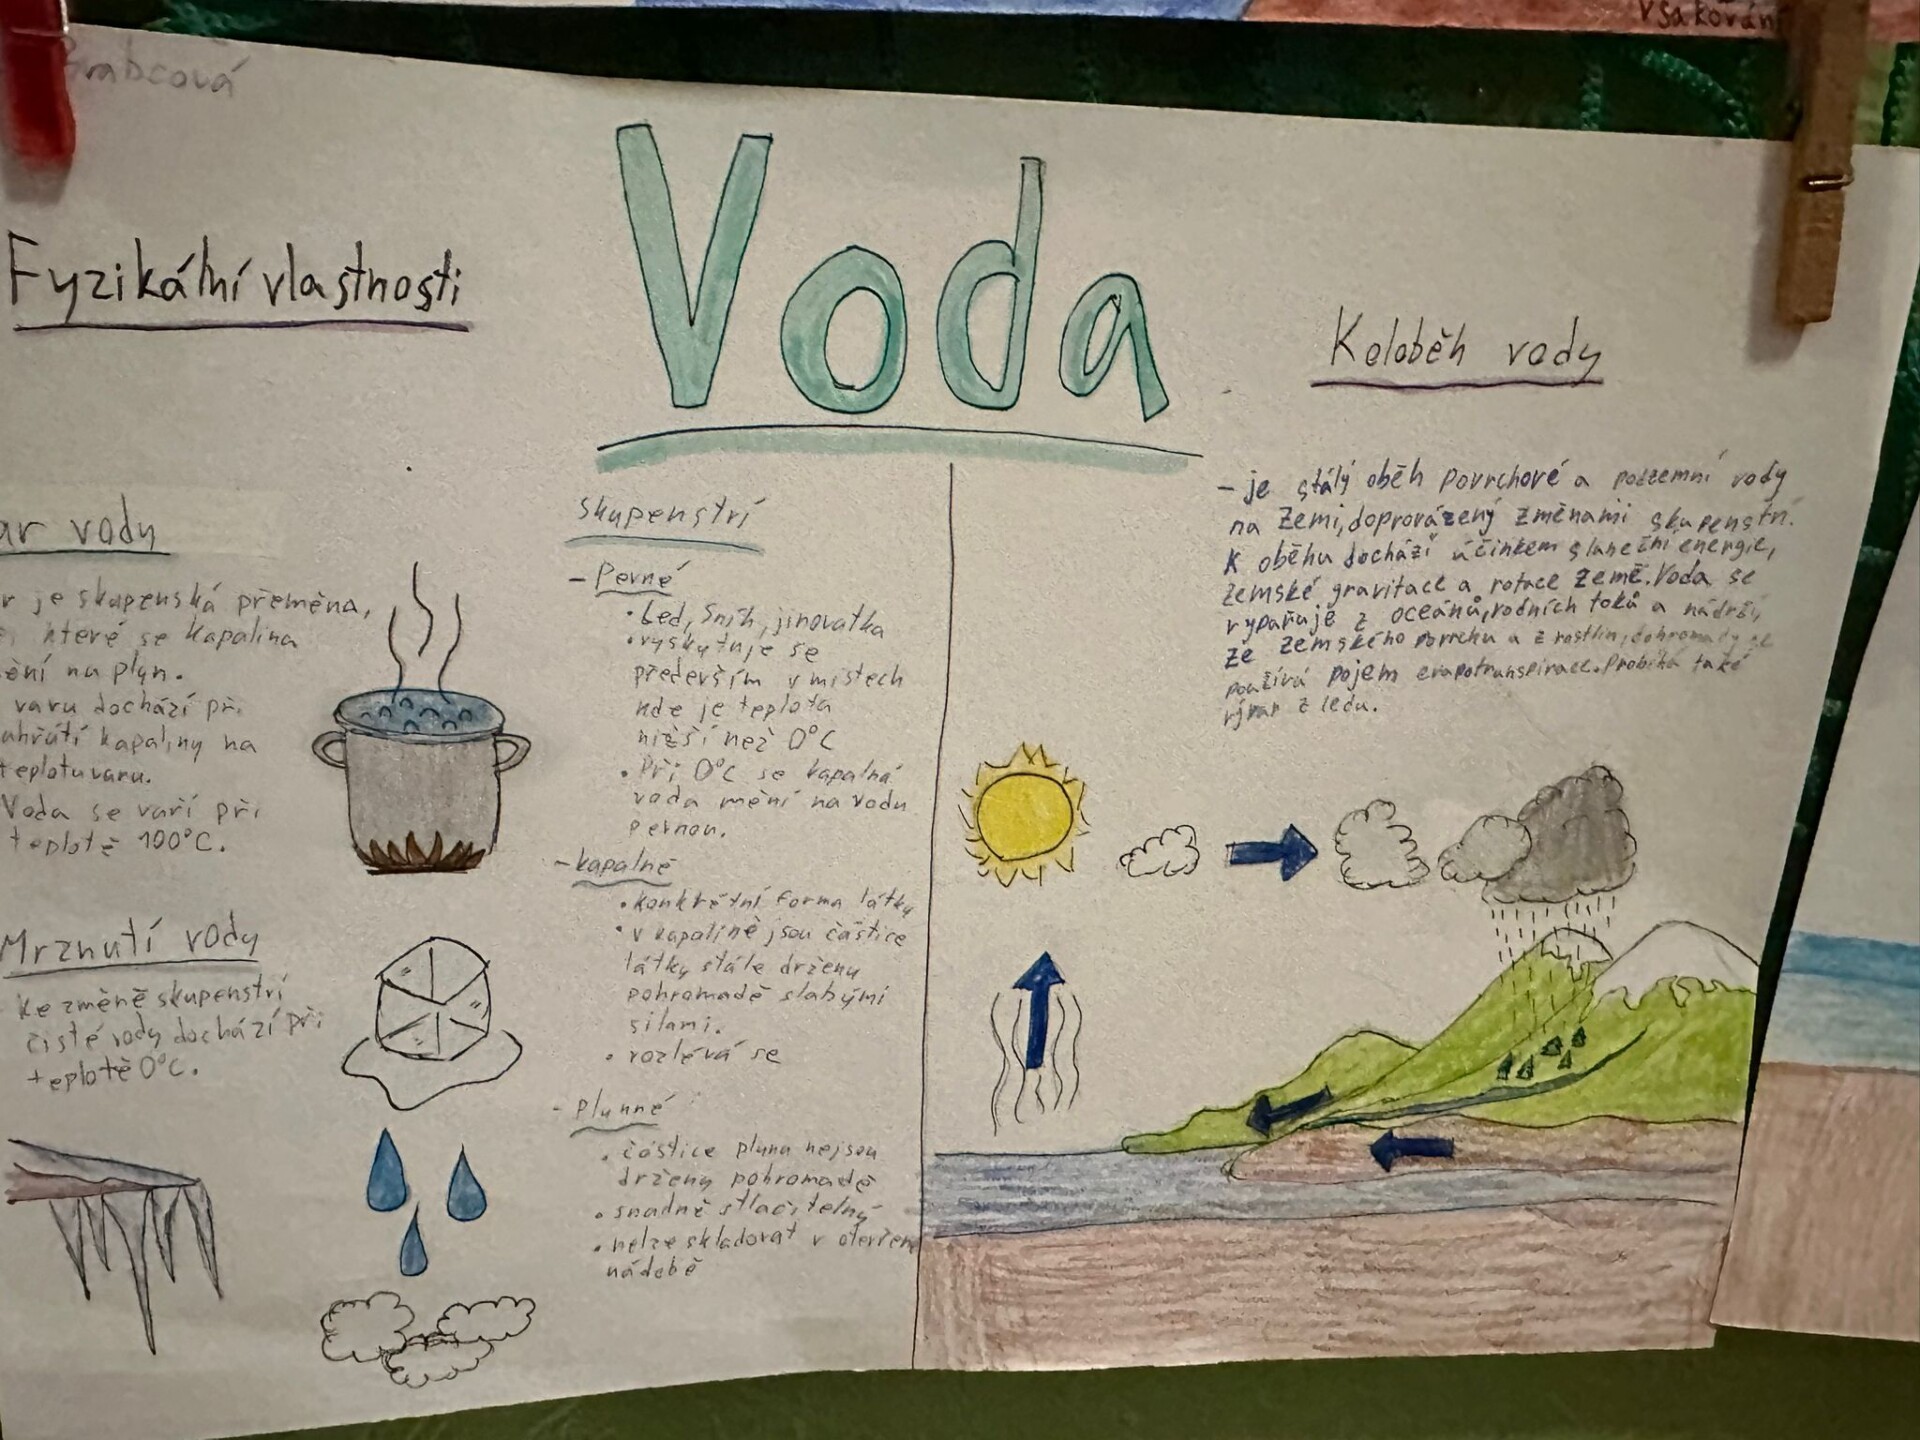 Vsakování
Brabcová
Voda
Fyzikální vlastnosti
ar vody
r je skupenská přeměna,
které se kapalina
ění na plyn.
varu dochází při
ahřátí kapaliny na
teplotu varu.
Voda se vaří při
teplotě 100°C.
Mrznutí vody
Ke změně skupenství
čisté vody dochází při
teplotě 0°C.
skupenství
- Pevné
• Led, Sníh, jinovatka
• vyskytuje se
především v místech
kde je teplota
nižší než 0°C
• Při 0°C se kapalná
voda mění na vodu
pevnou.
- kapalné
• konkrétní forma látky
• v kapalině jsou částice
látky stále drženy
pohromadě slabými
silami.
• rozlévá se
- plynné
• částice plynu nejsou
drženy pohromadě
• snadně stlačitelný
• nelze skladovat v otevřen
nádobě
Koloběh vody
- je stálý oběh povrchové a podzemní vody
na Zemi, doprovázený změnami skupenství.
K oběhu dochází účinkem sluneční energie,
zemské gravitace a rotace Země. Voda se
vypařuje z oceánů, vodních toků a nádrží,
ze zemského povrchu a z rostlin, dohromady se
používá pojem evapotranspirace. Probíhá také
výpar z ledu.